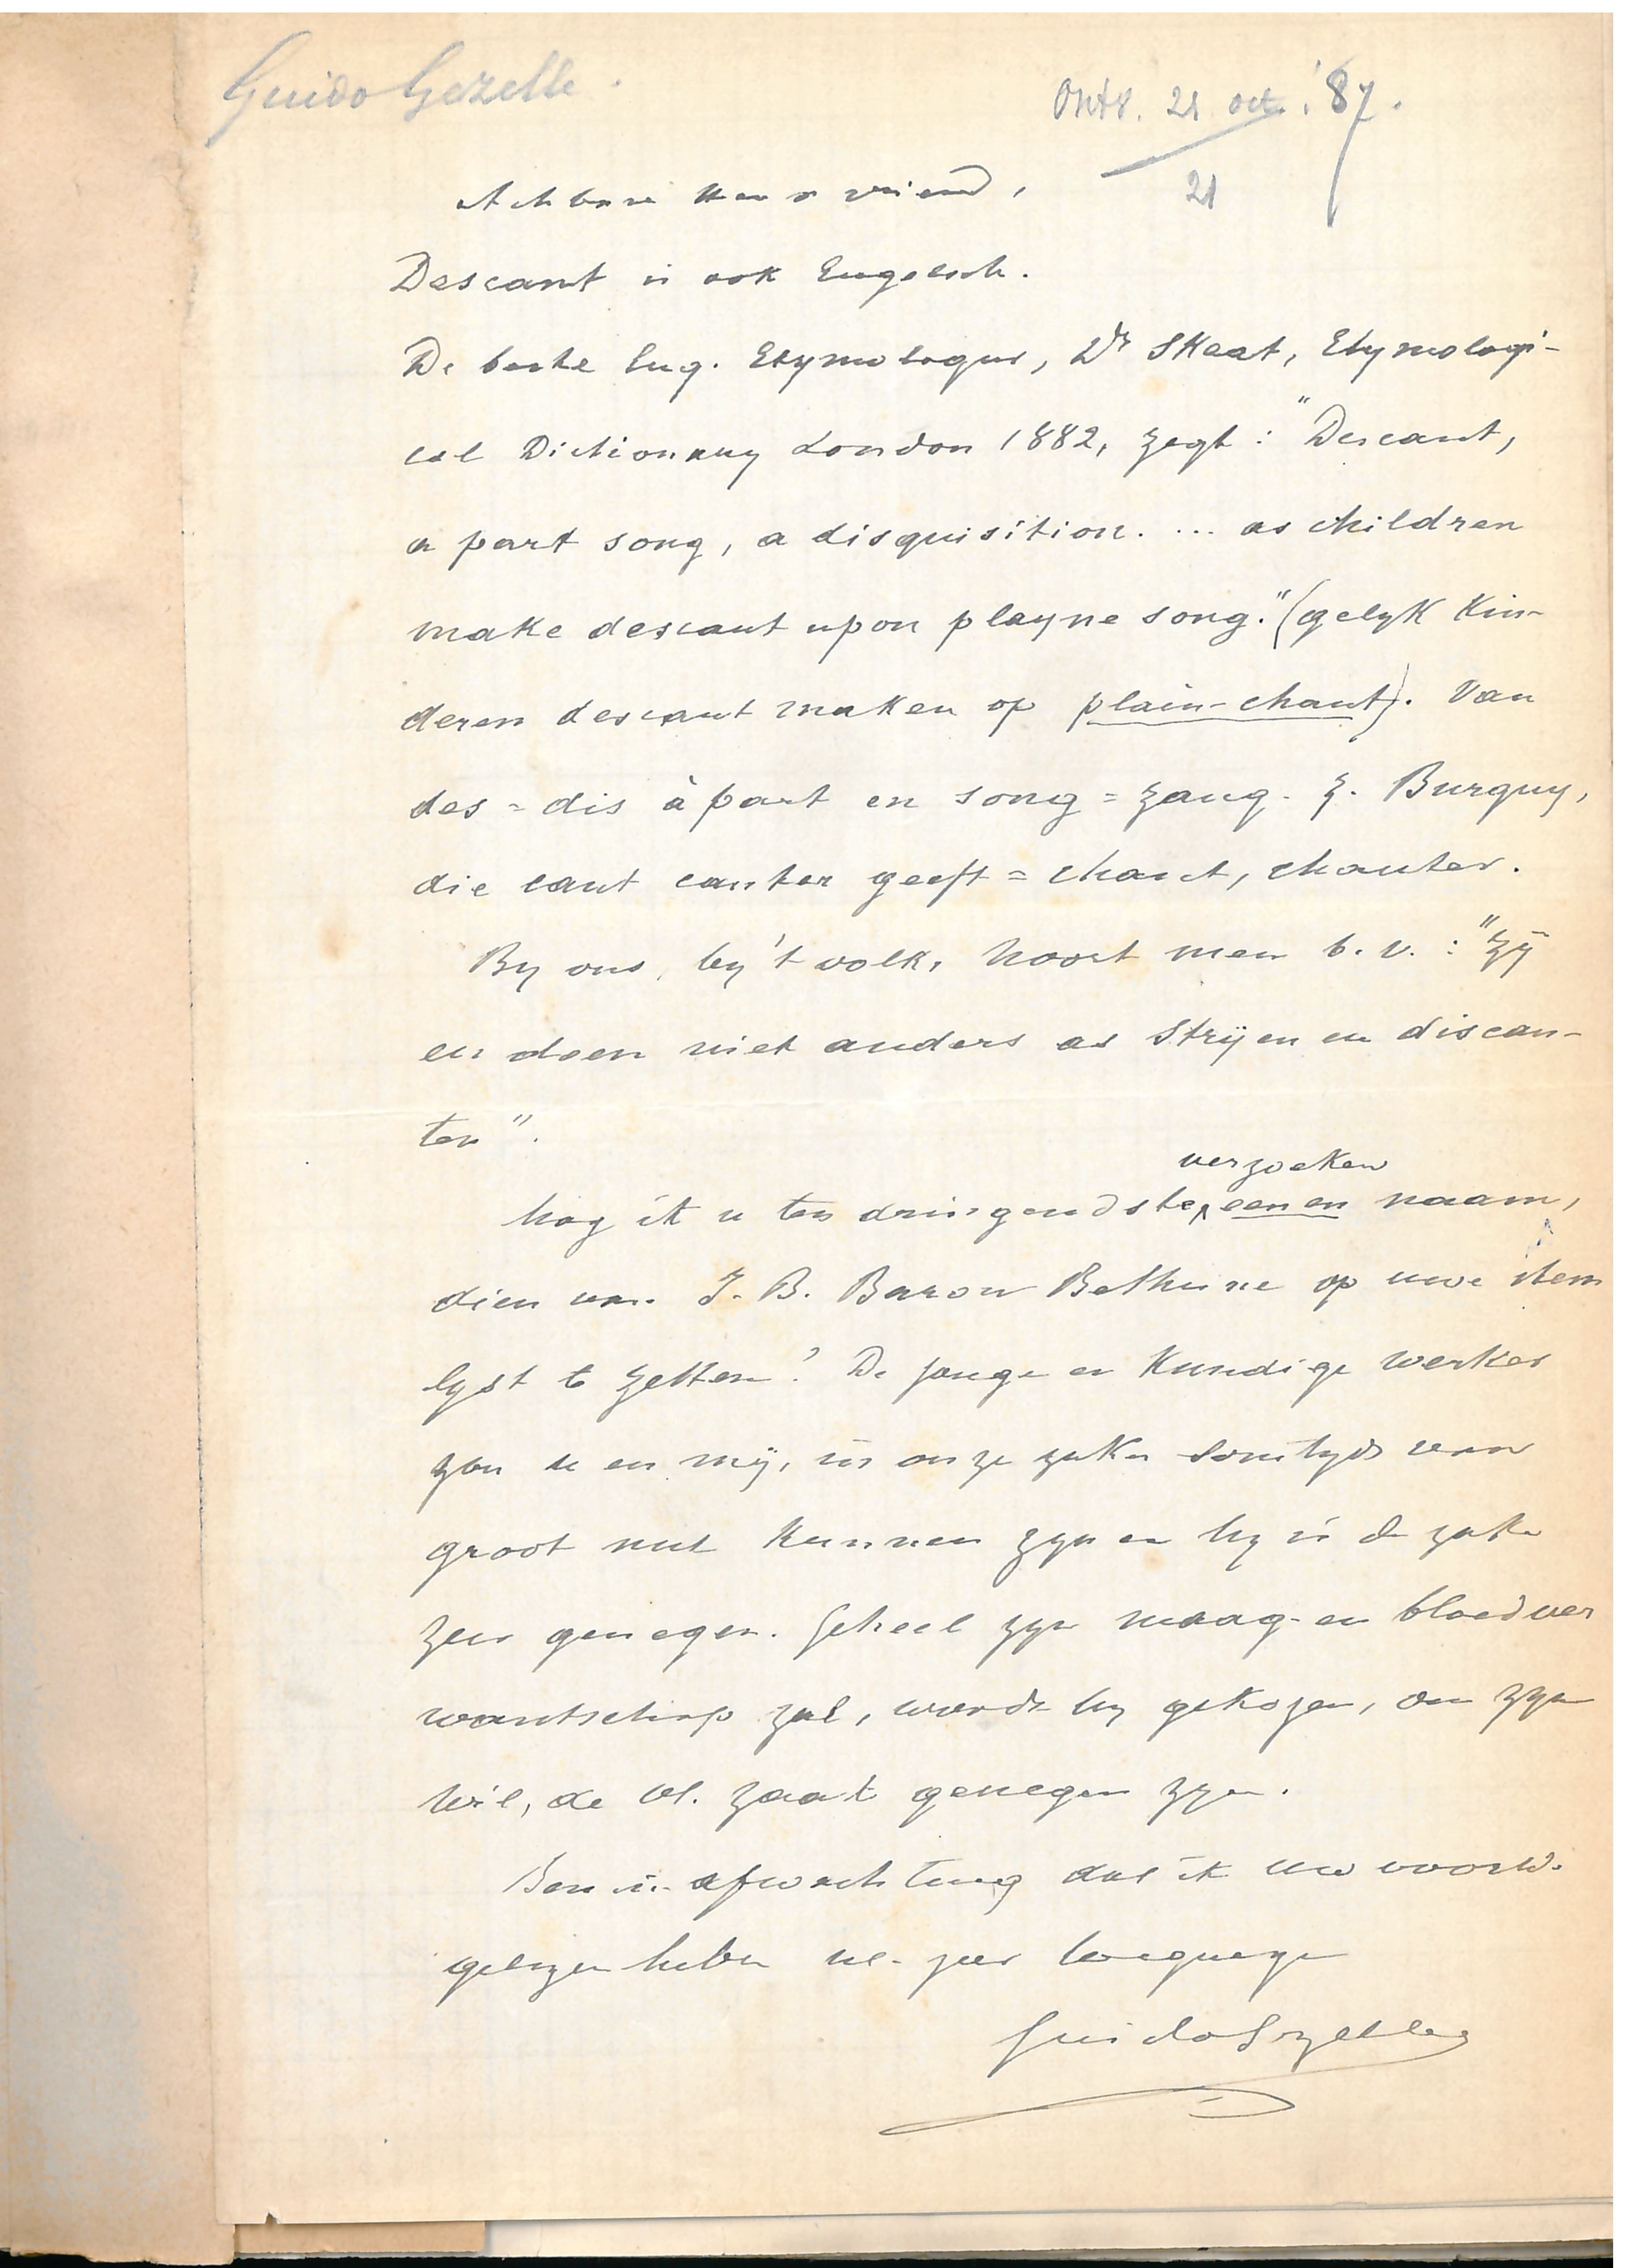 Guido Gezelle.
Ontv. 21 oct. '87.
21
Achbare Heer & vriend,
Descant is ook Engelsch.
De beste Eng. Etymologus, Dr Skeat, Etymologi-
cal Dictionary London 1882, zegt: "Descant,
a part song, a disquisition. ... as children
make descant upon playne song." (gelyk kin-
deren descant maken op plain-chant). Van
des = dis à part en song = zang. z. Burguy,
die cant canter geeft = chant, chanter.
By ons, by 't volk, hoort men b.v.: "Zÿ
en doen niet anders as stryen en discan-
ten".
verzoeken
Mag ik u ten dringendste, eenen naam,
dien van J. B. Baron Bethune op uwe stem
lyst te zetten? De jonge en kundige werker
zou u en mÿ, in onze zaken somtyds van
groot nut kunnen zyn en hy is de zake
zeer genegen. Geheel zyn maag- en bloedver
wantschap zal, wordt hy gekozen, om zyn
wil, de vl. zaak genegen zyn.
Ben in afwachting dat ik uw voorw.
gelezen hebbe ue. zeer toegenegen
Guido Gezelle